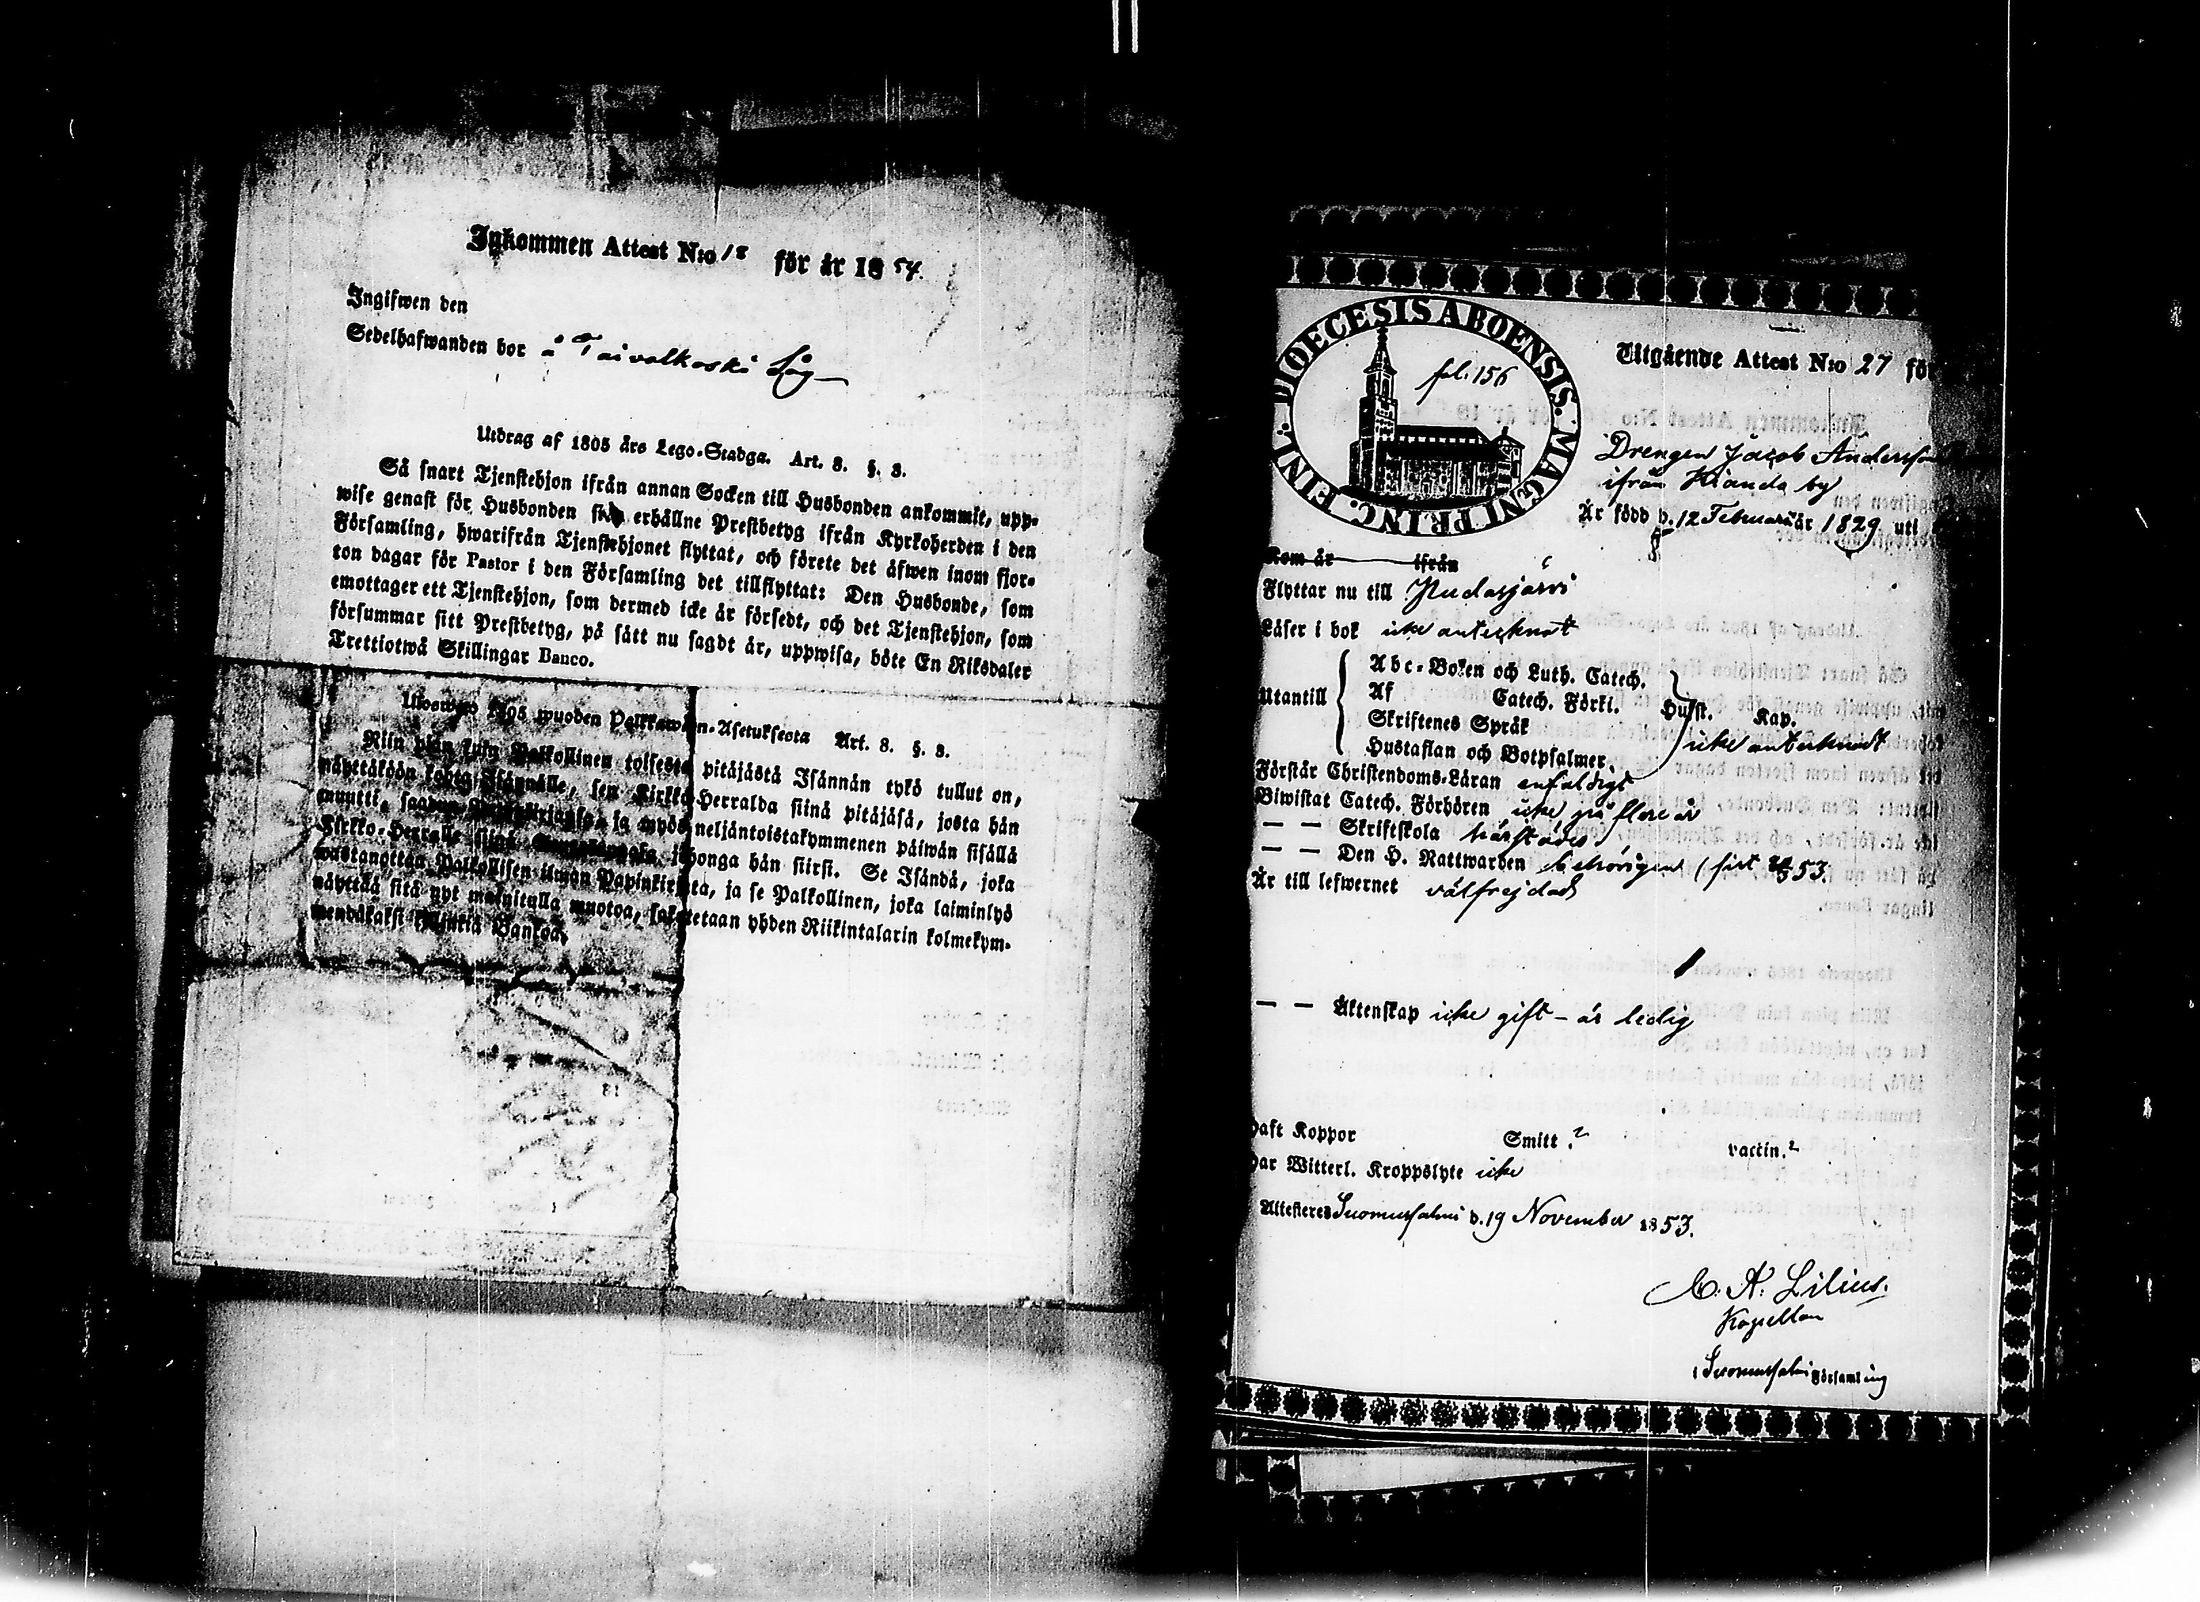 Inkommen Attest N:o 18 för år 1854.
Ingifwen den
Sedelhafwanden bor å Taivalkoski Såg
Utdrag af 1805 års Lego-Stadga. Art. 8. §. 8.
Så snart Tjenstehjon ifrån annan Socken till Husbonden ankommit, upp-
wise genast för Husbonden sitt erhållne Prestbetyg ifrån Kyrkoherden i den
Församling, hwarifrån Tjenstehjonet flyttat, och förete det äfwen inom fjor-
ton dagar för Pastor i den Församling det tillflyttat: Den Husbonde, som
emottager ett Tjenstehjon, som dermed icke är försedt, och det Tjenstehjon, som
försummar sitt Prestbetyg, på sätt nu sagdt är, uppwisa, böte En Riksdaler
Trettiotwå Skillingar Banco.
Ulosweto 1805 wuoden Palkkawäen-Asetuksesta Art. 8. §. 8.
Niin pian kuin Palkollinen toisesta pitäjästä Isännän tykö tullut on,
näyttäköön kohta Isännälle, sen Kirkko-Herralda siinä pitäjäsä, josta hän
muutti, saadun Papinkirjansa, ja myös neljäntoistakymmenen päiwän sisällä
Kirkko-Herralle siinä Seurakunnasa, johonga hän siirsi. Se Isändä, joka
wastanottaa Palkollisen ilman Papinkirjata, ja se Palkollinen, joka laiminlyö
näyttää sitä nyt mainitulla muotoa, sakotetaan yhden Riikintalarin kolmekym-
mendäkaksi killingiä Bankoa.
DIOECESIS ABOENSIS. MAGNI PRINC. FINL.
fol. 156
Utgående Attest N:o 27 för
Drengen Jacob Andersson
ifrån Kianda by
Är född d. 12 Februarii år 1829 uti
Kom år ifrån
Flyttar nu till Pudasjärvi
Läser i bok icke anteknat
Utantill
Abc-Boken och Luth. Catech.
Af Catech. Förkl. Hufst. Kap.
Skriftenes Språk
Hustaflan och Botpsalmer. icke anteknadt
Förstår Christendoms-Läran enfaldigt
Biwistat Catech. Förhören icke på flere år
— — Skriftskola härstädes
— — Den H. Nattwarden behörigen (sist 53.
Är till lefwernet välfrejdad
— — Äktenskap icke gift – är ledig
Haft Koppor Smitt.? vaccin.?
Har Witterl. Kroppslyte icke
Attesteres Suomussalmi d. 19 November 1853.
C. A. Lilius.
Kapellan
i Suomussalmi Församling